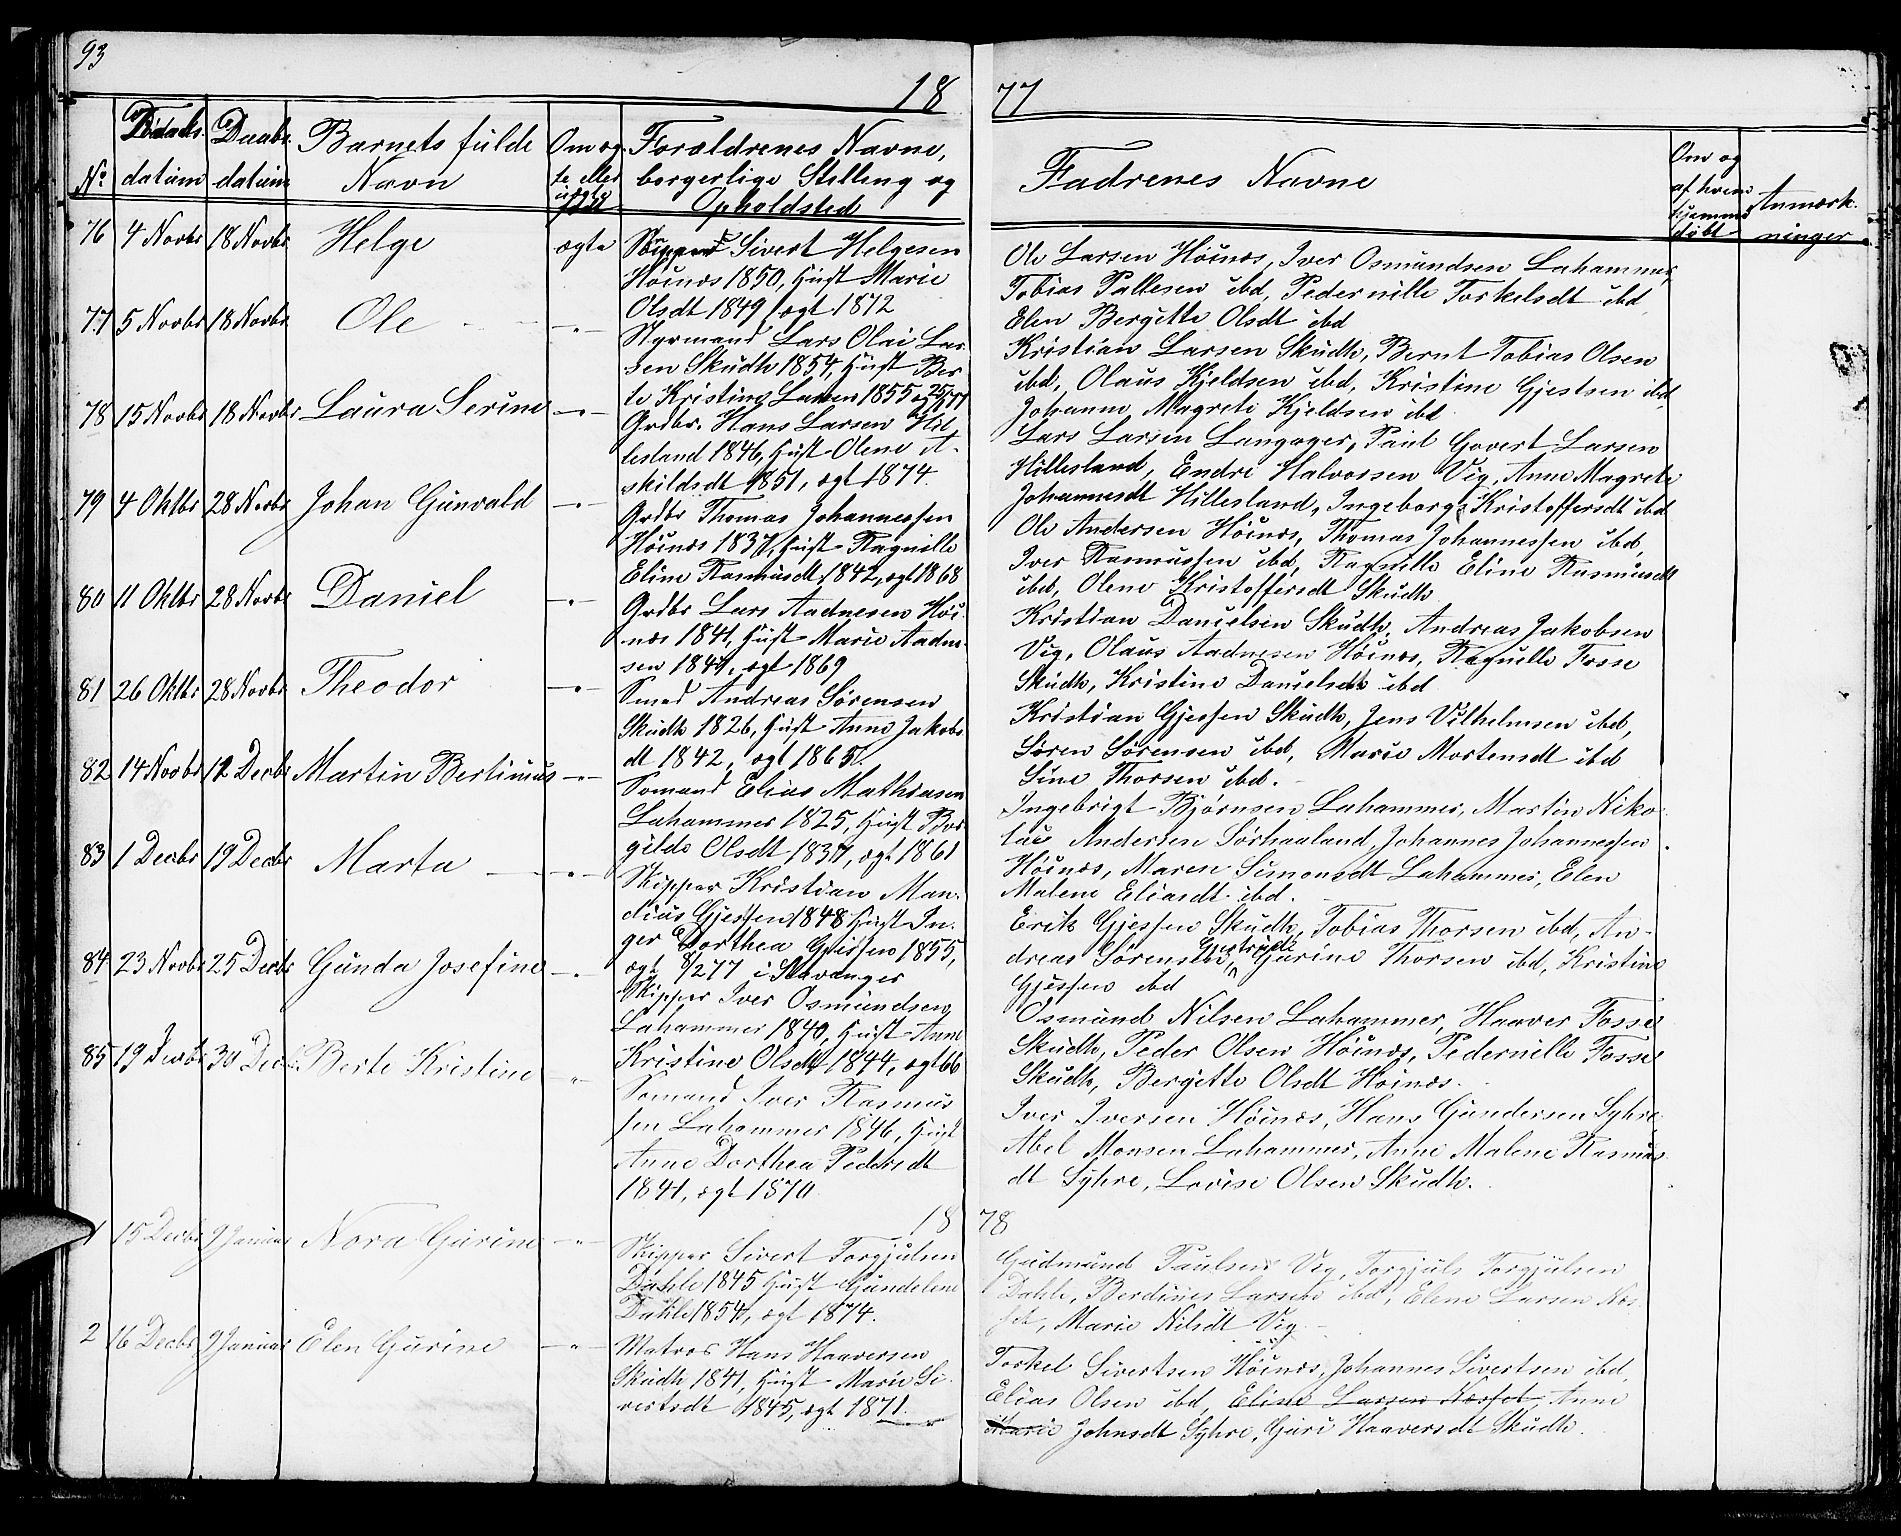 93
18 77
No Fødsels- datum Daabs- datum Barnets fulde Navn Om ægte eller uægte født Forældrenes Navne, borgerlige Stilling og Opholdsted Fadrenes Navne Om og af hvem hjemmedøbt Anmærkninger
76 4 Novbr 18 Novbr Helge ægte
Skipper Sivert Helgesen
Høinæs 1850, Hust Marie
Olsdt 1849, ægt 1872
Ole Larsen Høinæs, Iver Osmundsen Lahammer,
Tobias Pallesen ibd, Pedernille Torkelsdt ibd
Elen Bergitte Olsdt ibd
77 5 Novbr 18 Novbr Ole -"-
Styrmand Lars Olai Lar-
sen Skudh 1854, Hust Ber-
te Kristine Larsen 1855
Kristian Larsen Skudh, Bernt Tobias Olsen
ibd, Olaus Kjeldsen ibd, Kristine Gjestsen ibd,
Johanne Magrete Kjeldsen ibd
78 15 Novbr 18 Novbr Laura Serine -"-
Grdbr. Hans Larsen Hil-
lesland 1846, Hust Olene A-
skildsdt 1851, ægt 1874.
Lars Larsen Langager, Paul Govert Larsen
Hillesland, Endre Halvorsen Vig, Anne Magrete
Johannesdt Hillesland, Ingeborg Kristoffersdt ibd
79 4 Oktbr 28 Novbr Johan Gunvald -"-
Grdbr Thomas Johannessen
Høinæs 1837, Hust Ragnille
Eline Rasmusdt 1842, ægt 1868
Ole Andersen Høinæs, Thomas Johannessen ibd,
Iver Rasmussen ibd, Ragnille Eline Rasmusdt
ibd, Olene Kristoffersdt Skudh
80 11 Oktbr 28 Novbr Daniel -"-
Grdbr Lars Aadnesen Høi-
næs 1841, Hust Marie Aadne-
sen 1847, ægt 1869
Kristian Danielsen Skudh, Andreas Jakobsen
Vig, Olaus Aadnesen Høinæs, Ragnille Fosse
Skudh, Kristine Danielsdt ibd
81 26 Oktbr 28 Novbr Theodor -"-
Smed Andreas Sørensen
Skudh 1826, Hust Anne Jakobs
dt 1842, ægt 1865.
Kristian Gjessen Skudh, Jens Vilhelmsen ibd,
Søren Sørensen ibd, Marie Mortensdt ibd
Sine Thorsen ibd.
82 14 Novbr 12 Decbr Martin Bertinius -"-
Sømand Elias Mathiasen
Lahammer 1825, Hust Bor-
gilde Olsdt 1837, ægt 1861
Ingebrigt Bjørnsen Lahammer, Martin Niko-
lai Andersen Sørhaaland, Johannes Johannessen
Høinæs, Maren Simonsdt Lahammer, Elen
Malene Eliasdt ibd.
83 1 Decbr 19 Decbr Marta -"-
Skipper Kristian Man-
dius Gjessen 1848 Hust In-
ger Dorthea Gjessen 1855,
ægt 8/2 77 i Stavanger
Erik Gjessen Skudh, Tobias Thorsen ibd, An-
dreas Sørensen, Gurine Thorsen ibd, Kristine
Gjessen ibd
84 23 Novbr 25 Decbr Gunda Josefine -"-
Skipper Iver Osmundsen
Lahammer 1840, Hust Anne
Kristine Olsdt 1844, ægt 66
Osmund Nilsen Lahammer, Haaver Fosse
Skudh, Peder Olsen Høinæs, Pedernille Fosse
Skudh, Bergitte Olsdt Høinæs.
85 19 Decbr 30 Decbr Berte Kristine "
Sømand Iver Rasmus
sen Lahammer 1846, Hust
Anne Dorthea Pedersdt
1841, ægt 1870
Iver Iversen Høinæs, Hans Gundersen Syhre
Abel Monsen Lahammer, Anne Malene Rasmus
dt Syhre, Lovise Olsen Skudh.
18 78
1 15 Decbr 9 Januar Nora Gurine -"-
Skipper Sivert Torgjulsen
Dahle 1845 Hust Gundelene
Dahle 1854, ægt 1874.
Gudmund Paulsen Vig, Torgjuls Torgjulsen
Dahle, Berdines Larsen ibd, Eline Larsen Næs-
set, Marie Nilsdt Vig
2 16 Decbr 9 Januar Elen Gurine -"-
Matros Hans Haaversen
Skudh 1841, Hust Marie Si-
vertsdt 1845, ægt 1871.
Torkel Sivertsen Høinæs, Johannes Sivertsen ibd,
Elias Olsen ibd, Eline Larsen Næsset, Anne
Marie Johnsdt Syhre, Guri Haaversdt Skudh.